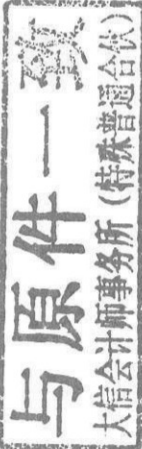 与原件一致
大信会计师事务所(特殊普通合伙)